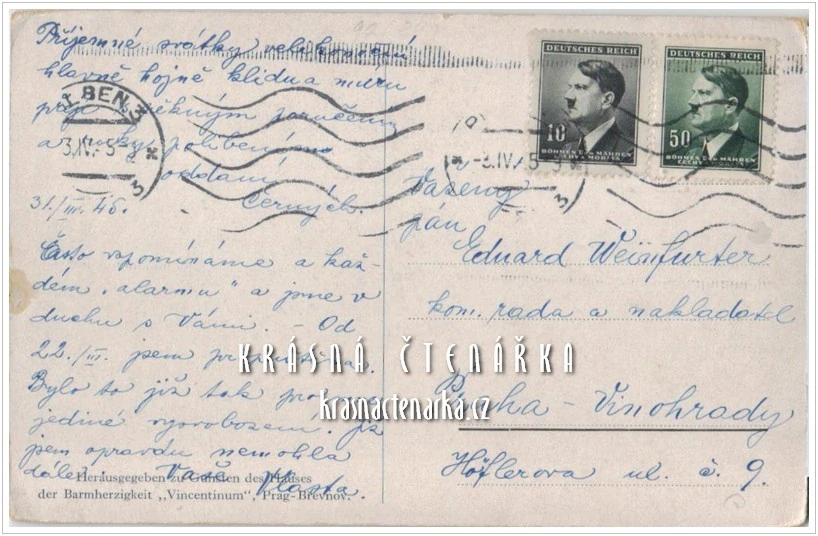 Příjemné svátky velikonoční
hlavně hojně klidu a míru
přeje s pěkným poručením
a
oddaní
31./III. 45. Černých.
Často vzpomínáme a kaž-
dém „alarmu" a jsme v
duchu s Vámi. - Od
22./III. jsem
Bylo to již tak pro
jediné vysvobození. Již
jsem opravdu nemohla
dále! Vaše Vlasta.
Herausgegeben zu Gunsten des Hauses
der Barmherzigkeit „Vincentinum", Prag-Břevnov.
DEUTSCHES REICH
10
BÖHMEN U. MÄHREN
ČECHY A MORAVA
DEUTSCHES REICH
50
BÖHMEN U. MÄHREN
ČECHY A MORAVA
Vážený
pán
Eduard Weinfurter
kom. rada a nakladatel
Praha - Vinohrady
Höflerova ul. č. 9.
KRÁSNÁ ČTENÁŘKA
krasnactenarka.cz